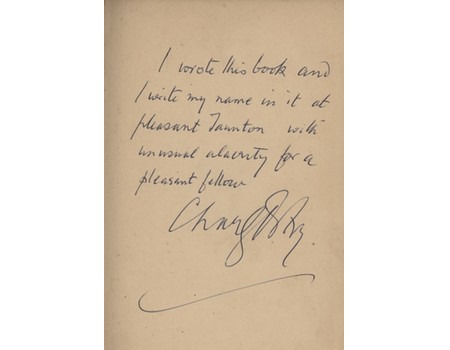 I wrote this book and
I write my name in it at
pleasant Taunton with
unusual alacrity for a
pleasant fellow